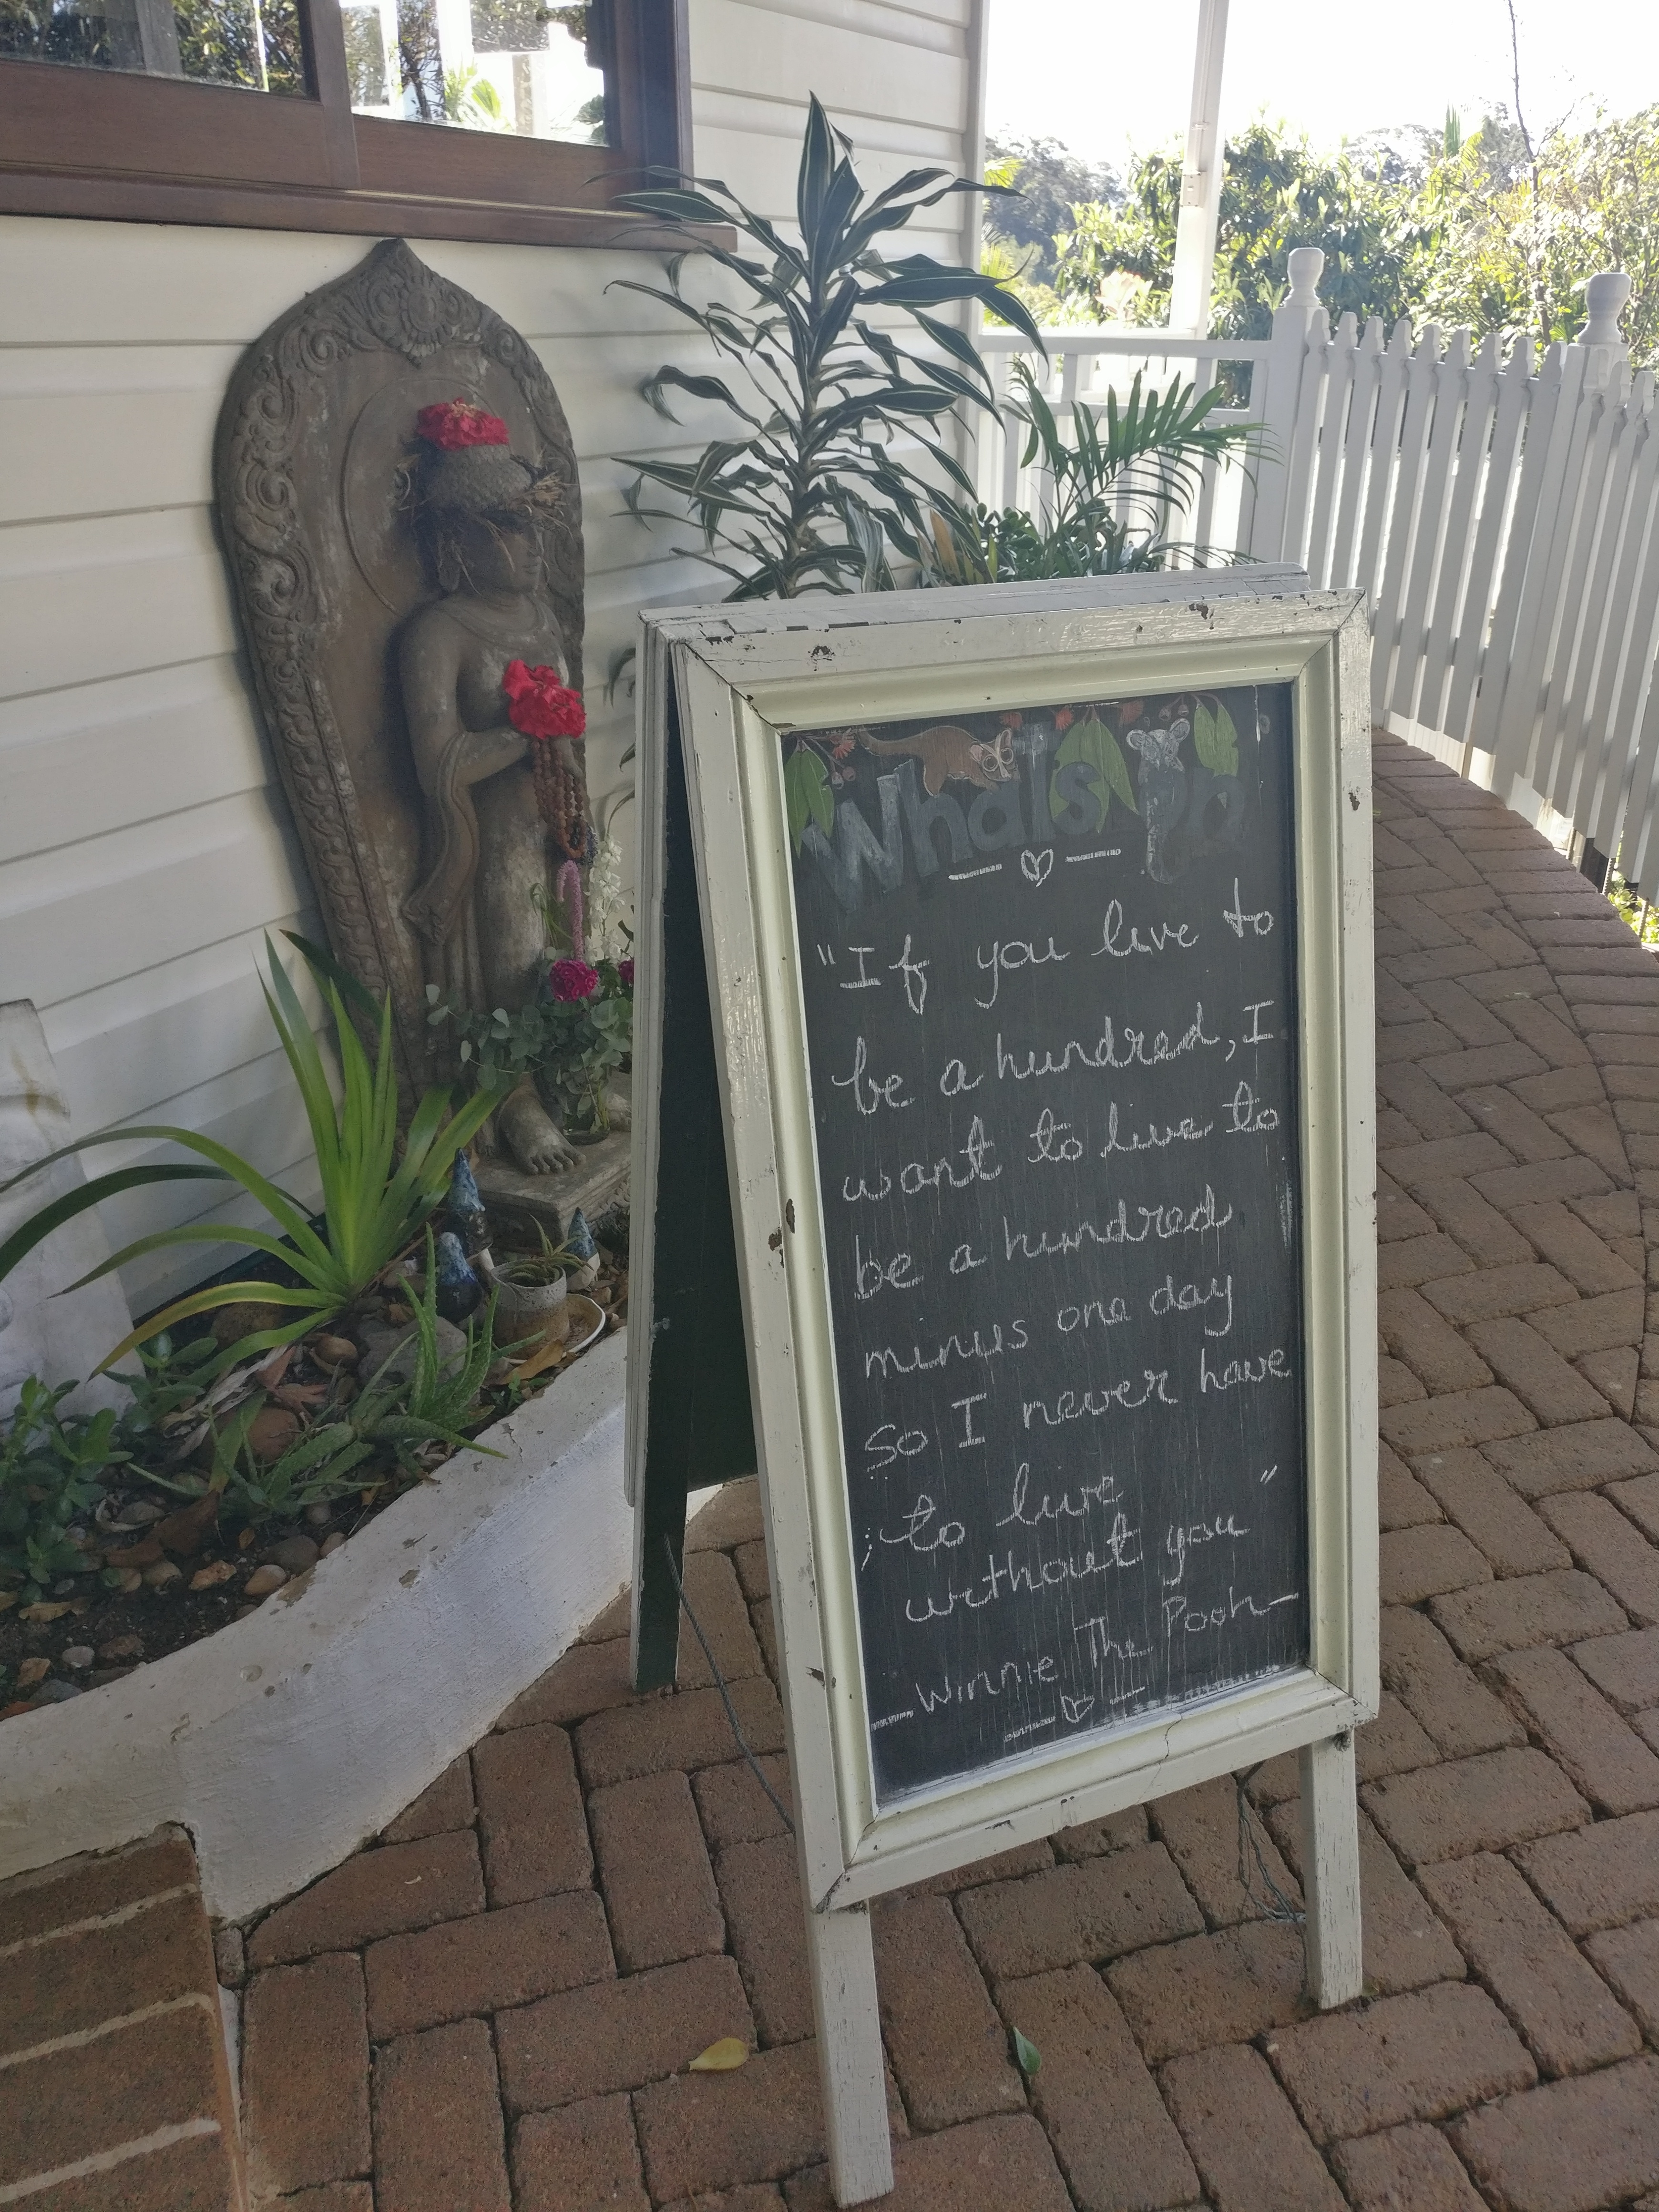 Whats Up
"If you live to
be a hundred, I
want to live to
be a hundred
minus one day
so I never have
to live
without you"
Winnie The Pooh